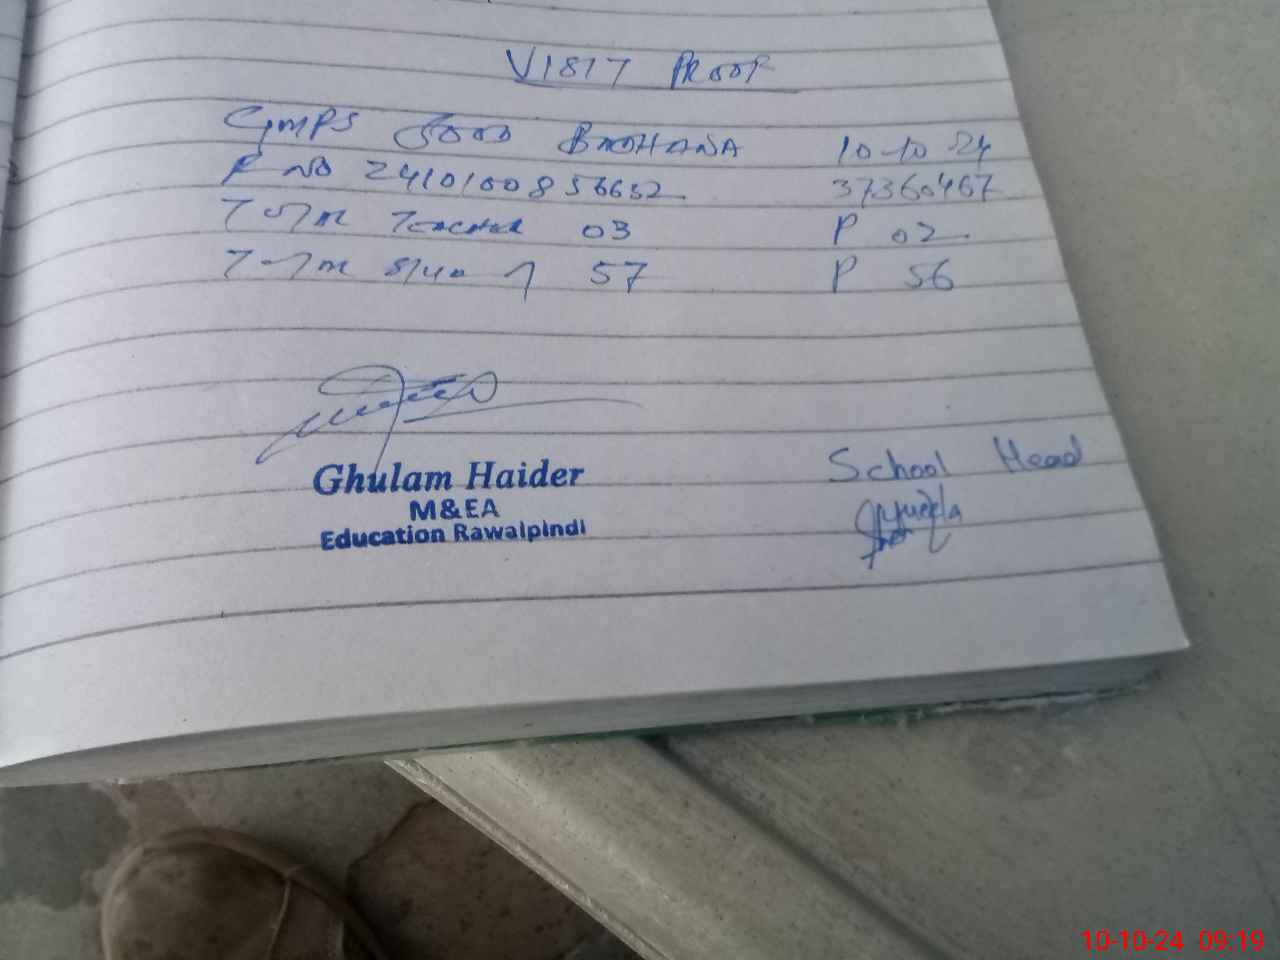 VISIT PROOF
GMPS SOOD BADHANA 10-10-24
R NO 2410100856632 37360467
TOTAL TEACHER 03 P 02
TOTAL 57 P 56
Ghulam Haider
M&EA
Education Rawalpindi
School Head
10-10-24 09:19